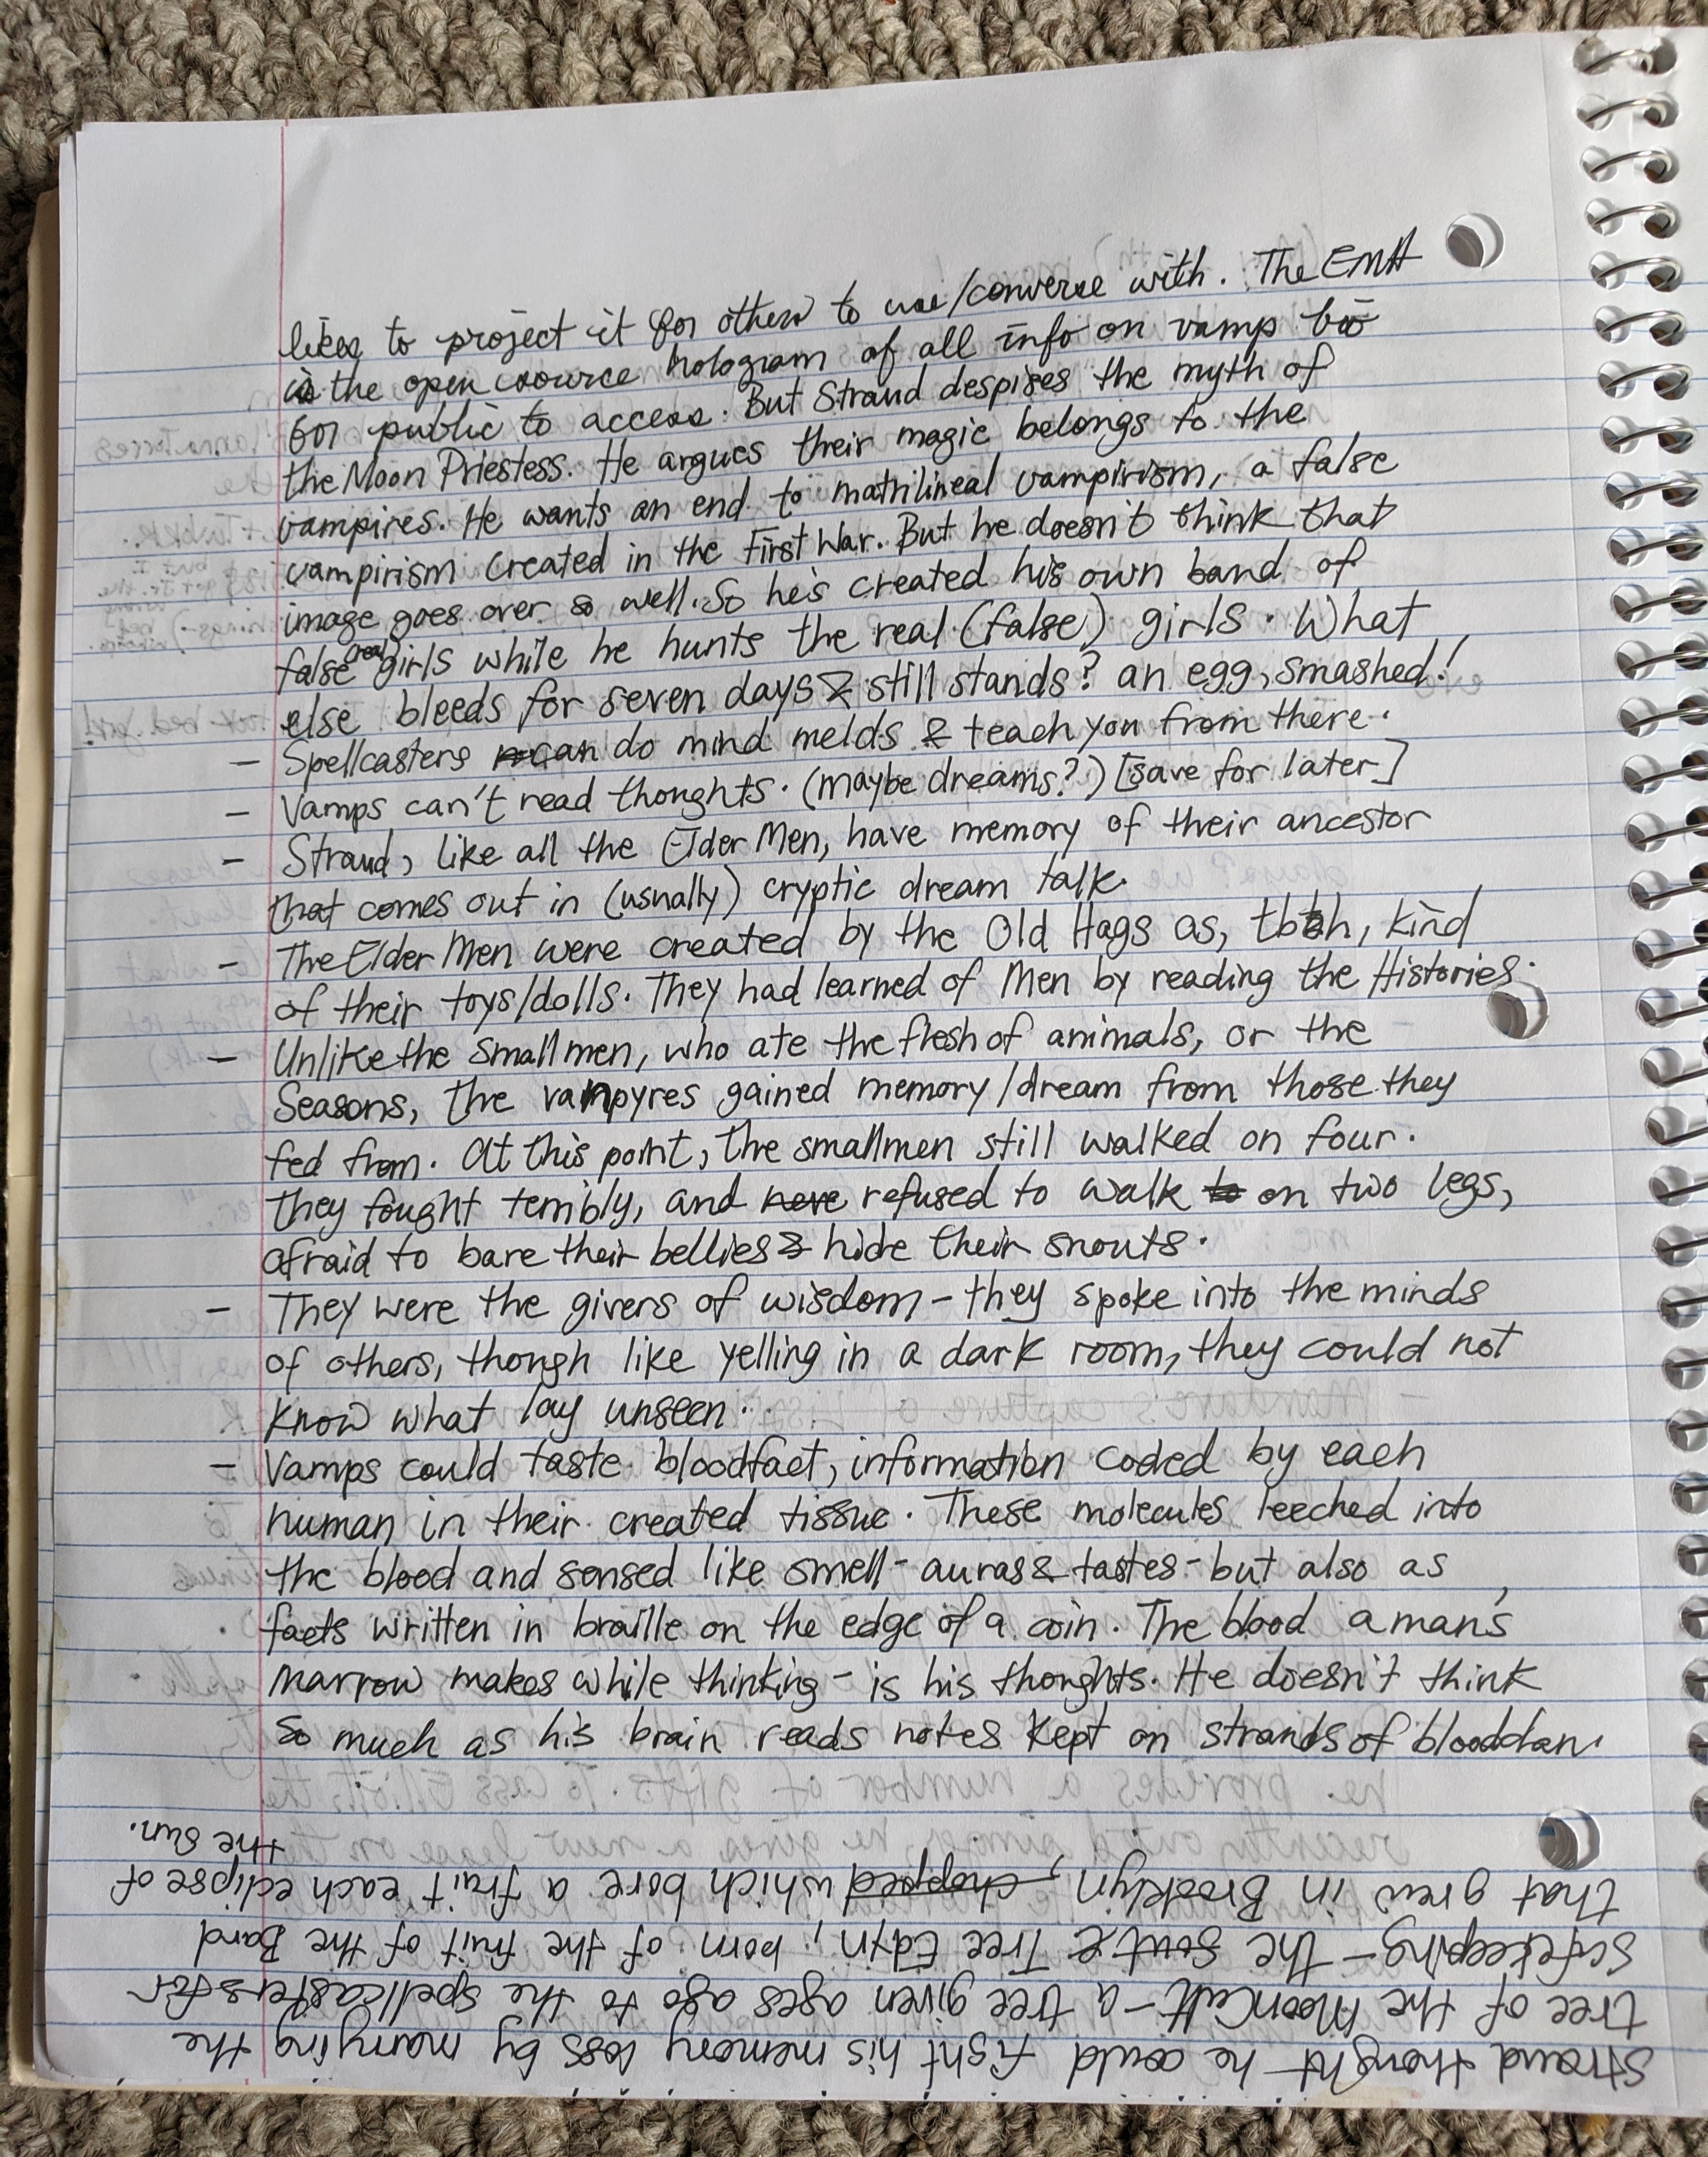 likes to project it for others to use/converse with. The EMH
is the open source hologram of all info on vamp bio
for public to access. But Straud despises the myth of
the Moon Priestess. He argues their magic belongs to the
vampires. He wants an end to matrilineal vampirism, a false
vampirism created in the First War. But he doesn't think that
image goes over so well. So he's created his own band of
false (real) girls while he hunts the real (false) girls. What
else bleeds for seven days & still stands? an egg, smashed!
- Spellcasters can do mind melds & teach you from there.
- Vamps can't read thoughts. (maybe dreams?) [save for later]
- Straud, like all the Elder Men, have memory of their ancestor
that comes out in (usually) cryptic dream talk.
- The Elder Men were created by the Old Hags as, tbh, kind
of their toys/dolls. They had learned of Men by reading the Histories.
- Unlike the smallmen, who ate the flesh of animals, or the
Seasons, the vampyres gained memory/dream from those they
fed from. At this point, the smallmen still walked on four.
They fought terribly, and refused to walk to on two legs,
afraid to bare their bellies & hide their snouts.
- They were the givers of wisdom - they spoke into the minds
of others, though like yelling in a dark room, they could not
know what lay unseen..
- Vamps could taste bloodfact, information coded by each
human in their created tissue. These molecules leeched into
the blood and sensed like smell - auras & tastes - but also as
facts written in braille on the edge of a coin. The blood a man's
marrow makes while thinking - is his thoughts. He doesn't think
so much as his brain reads notes kept on strands of
Straud thought he could fight his memory loss by marrying the
tree of the MoonCult - a tree given ages ago to the spellcasters for
safekeeping - the Tree Edyn, born of the fruit of the Bard
that grew in Brooklyn, chopped which bore a fruit each eclipse of
the sun.